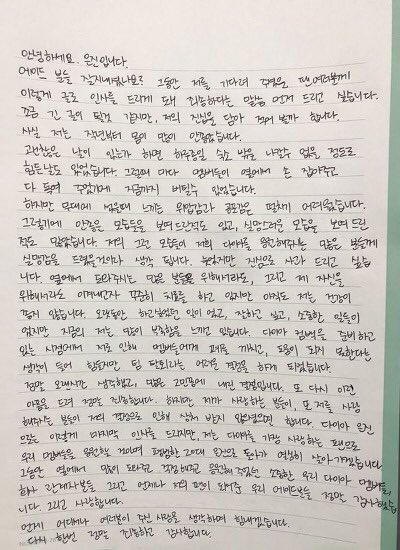 안녕하세요. 은진입니다.
에이드 분들 잘지내셨나요? 그동안 저를 기다려 주셨을 팬여러분께
이렇게 글로 인사를 드리게 돼 죄송하다는 말씀 먼저 드리고 싶습니다.
조금 긴 글이 될것 같지만, 저의 진심을 담아 적어 볼까 합니다.
사실 저는, 작년부터 몸이 많이 안좋았습니다.
괜찮은 날이 있는가 하면 하루종일 숙소 밖을 나갈수 없을 정도로
힘든날도 있었습니다. 그럴때 마다 멤버들이 옆에서 손 잡아주고
다 독여 주었기에 지금까지 버틸수 있었습니다.
하지만 무대에 섰을때 느끼는 위압감과 공포감은 떨치기 어려웠습니다.
그렇기에 안좋은 모습들을 보여드린적도 있고, 실망스러운 모습을 보여 드린
적도 많았습니다. 저의 그런 모습이 저희 다이아를 응원해주는 많은 분들께
실망감을 드렸을거라 생각 됩니다. 늦었지만 진심으로 사과 드리고 싶습
니다. 옆에서 도와주시는 많은 분들을 위해서라도, 그리고 제 자신을
위해서라도 이겨내고자 꾸준히 치료를 하고 있지만 아직도 저는 건강이
좋지 않습니다. 오랫동안 하고싶었던 일이 없고, 잘하고 싶고, 소중한 일들이
없지만 지금의 저는 많이 부족함을 느끼고 있습니다. 다이아 컴백을 준비 하고
있는 시점에서 저로 인해 멤버들에게 폐를 끼치고, 도움이 되지 못한다는
생각이 들어 힘들지만 팀 탈퇴라는 어려운 결정을 하게 되었습니다.
정말 오래시간 생각했고, 많은 고민끝에 내린 결정입니다. 또 다시 이런
아픔을 드려 정말 죄송합니다. 하지만 제가 사랑하는 분들이, 또 저를 사랑
해주시는 분들이 저의 결정으로 인해 상처 받지 않았으면 합니다. 다이아 은진
으로는 이렇게 마지막 인사를 드리지만, 저는 다이아를 가장 사랑하는 팬으로
우리 멤버들을 응원할 것이며 평범한 20대 은진으로 돌아가 열심히 살아가겠습니다.
그동안 옆에서 많이 도와주고 걱정해주고 응원해주었던 소중한 우리 다이아 멤버들,
회사 관계자분들 그리고 언제나 저의 편이 되어준 우리 에이드분들 정말 감사했습
니다 그리고 사랑합니다.
언제 어디에서나 여러분이 주신 사랑을 생각하며 힘내겠습니다.
다시 한번 정말 죄송하고 감사합니다.